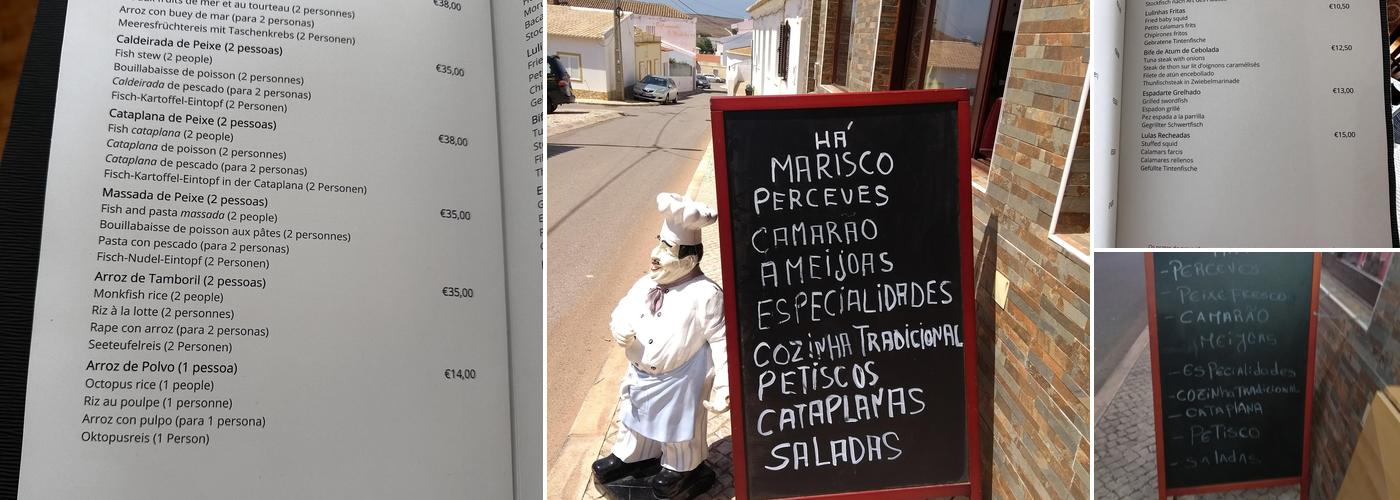 fruits de mer et au tourteau (2 personnes)
Arroz con buey de mar (para 2 personas)
Meeresfrüchtereis mit Taschenkrebs (2 Personen)
€38,00
Caldeirada de Peixe (2 pessoas)
Fish stew (2 people)
€35,00
Bouillabaisse de poisson (2 personnes)
Caldeirada de pescado (2 personas)
Fisch-Kartoffel-Eintopf (2 Personen)
Cataplana de Peixe (2 pessoas)
Fish cataplana (2 people)
€38,00
Cataplana de poisson (2 personnes)
Cataplana de pescado (para 2 personas)
Fisch-Kartoffel-Eintopf in der Cataplana (2 Personen)
Massada de Peixe (2 pessoas)
€35,00
Fish and pasta massada (2 people)
Bouillabaisse de poisson aux pâtes (2 personnes)
Pasta con pescado (para 2 personas)
Fisch-Nudel-Eintopf (2 Personen)
Arroz de Tamboril (2 pessoas)
€35,00
Monkfish rice (2 people)
Riz à la lotte (2 personnes)
Rape con arroz (para 2 personas)
Seeteufelreis (2 Personen)
Arroz de Polvo (1 pessoa)
€14,00
Octopus rice (1 people)
Riz au poulpe (1 personne)
Arroz con pulpo (para 1 persona)
Oktopusreis (1 Person)
HÁ
MARISCO
PERCEVES
CAMARÃO
AMEIJOAS
ESPECIALIDADES
COZINHA TRADICIONAL
PETISCOS
CATAPLANAS
SALADAS
Lulinhas Fritas
€10,50
Fried baby squid
Petits calamars frits
Chipirones fritos
Gebratene Tintenfische
Bife de Atum de Cebolada
€12,50
Tuna steak with onions
Steak de thon sur lit d'oignons caramélisés
Filete de atún encebollado
Thunfischsteak in Zwiebelmarinade
Espadarte Grelhado
€13,00
Grilled swordfish
Espadon grillé
Pez espada a la parrilla
Gegrillter Schwertfisch
Lulas Recheadas
€15,00
Stuffed squid
Calamars farcis
Calamares rellenos
Gefüllte Tintenfische
- PERCEVES
- PEIXE FRESCO
- CAMARÃO
AMEIJOAS
- ESPECIALIDADES
- COZINHA TRADICIONAL
- CATAPLANA
- PETISCO
- SALADAS